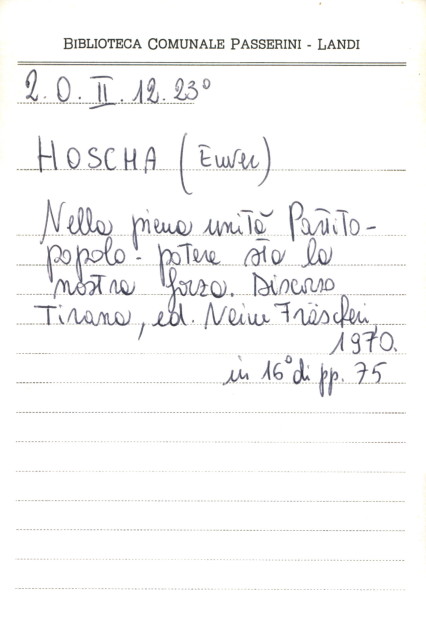 BIBLIOTECA COMUNALE PASSERINI - LANDI
2. O. II. 12. 23°
HOSCHA (Enver)
Nella piena unità Partito-
popolo - potere sta la
nostra forza. Discorso
Tirana, ed. Neim Frëscheri,
1970.
in 16° di pp. 75